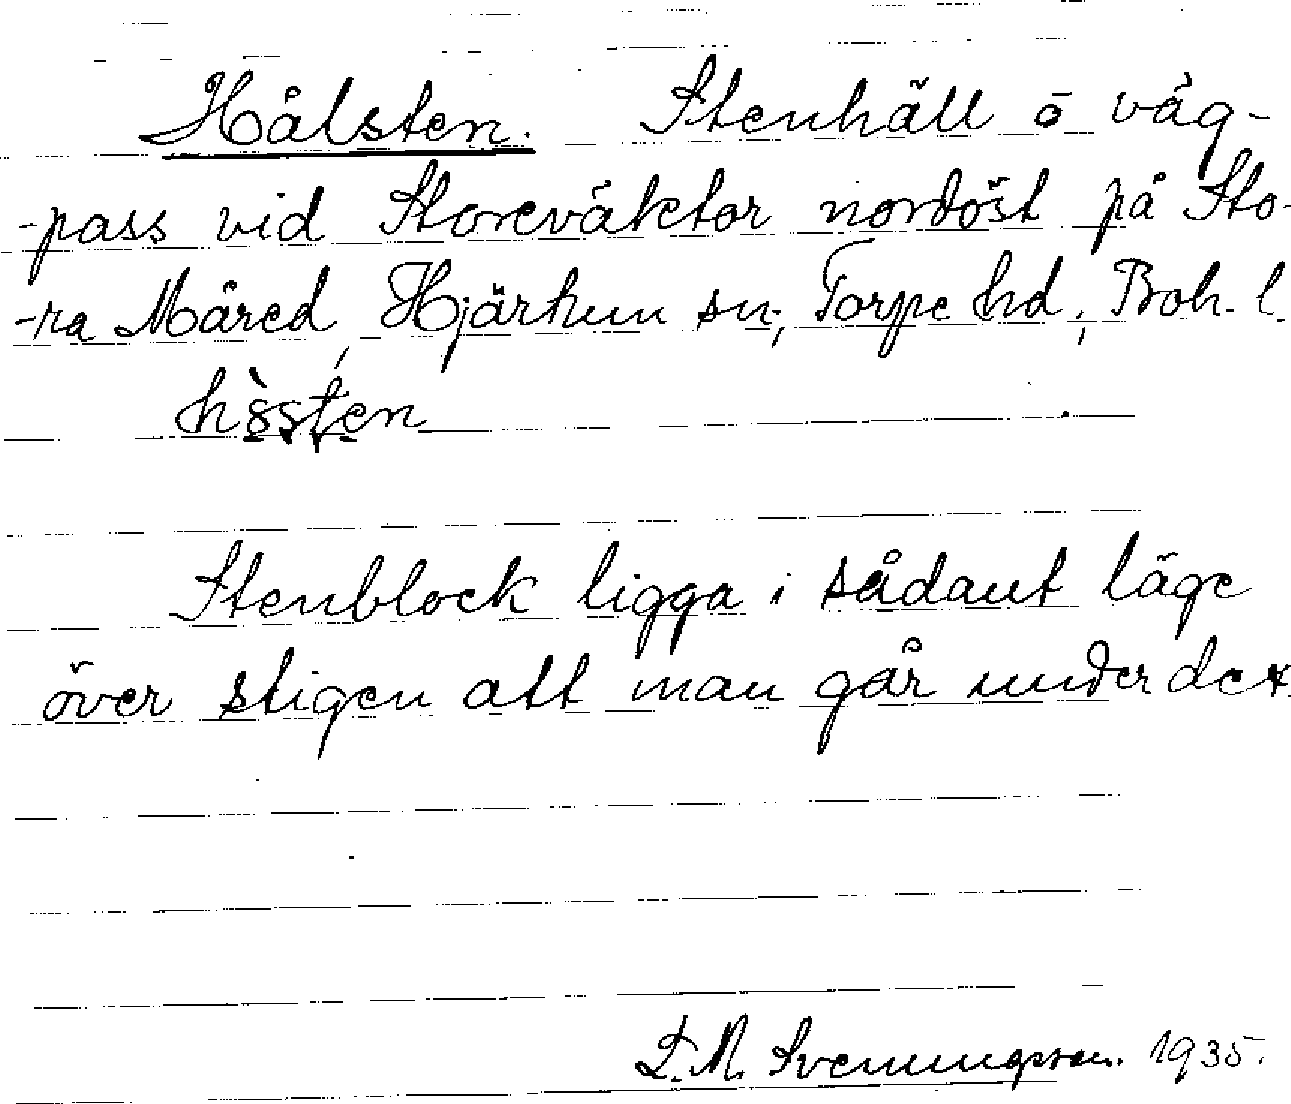 Hålsten. Stenhäll o väg-
-pass vid Storeväktor nordöst på Sto-
-ra Måred, Hjärtum sn; Torpe hd; Boh. l.
Stenblock ligga i sådant läge
över stigen att man går under det
L.M. Svenningson. 1935.